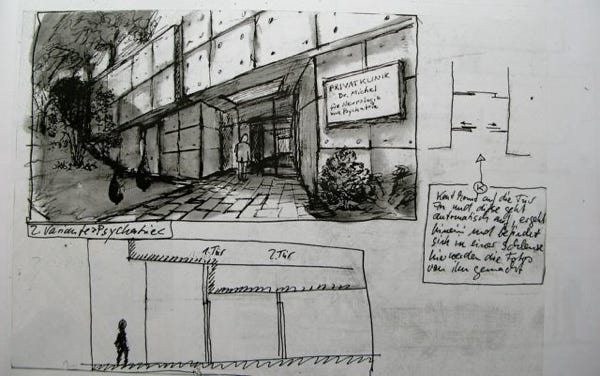 PRIVATKLINIK
Dr. Michel
für Neurologie
und Psychiatrie
2. Variante Psychatrie
1. Tür
2. Tür
K
kommt auf die Tür
zu und diese geht
automatisch auf, er geht
hinein und befindet
sich in einer Schleuse
hier werden die Fotos
von ihm gemacht